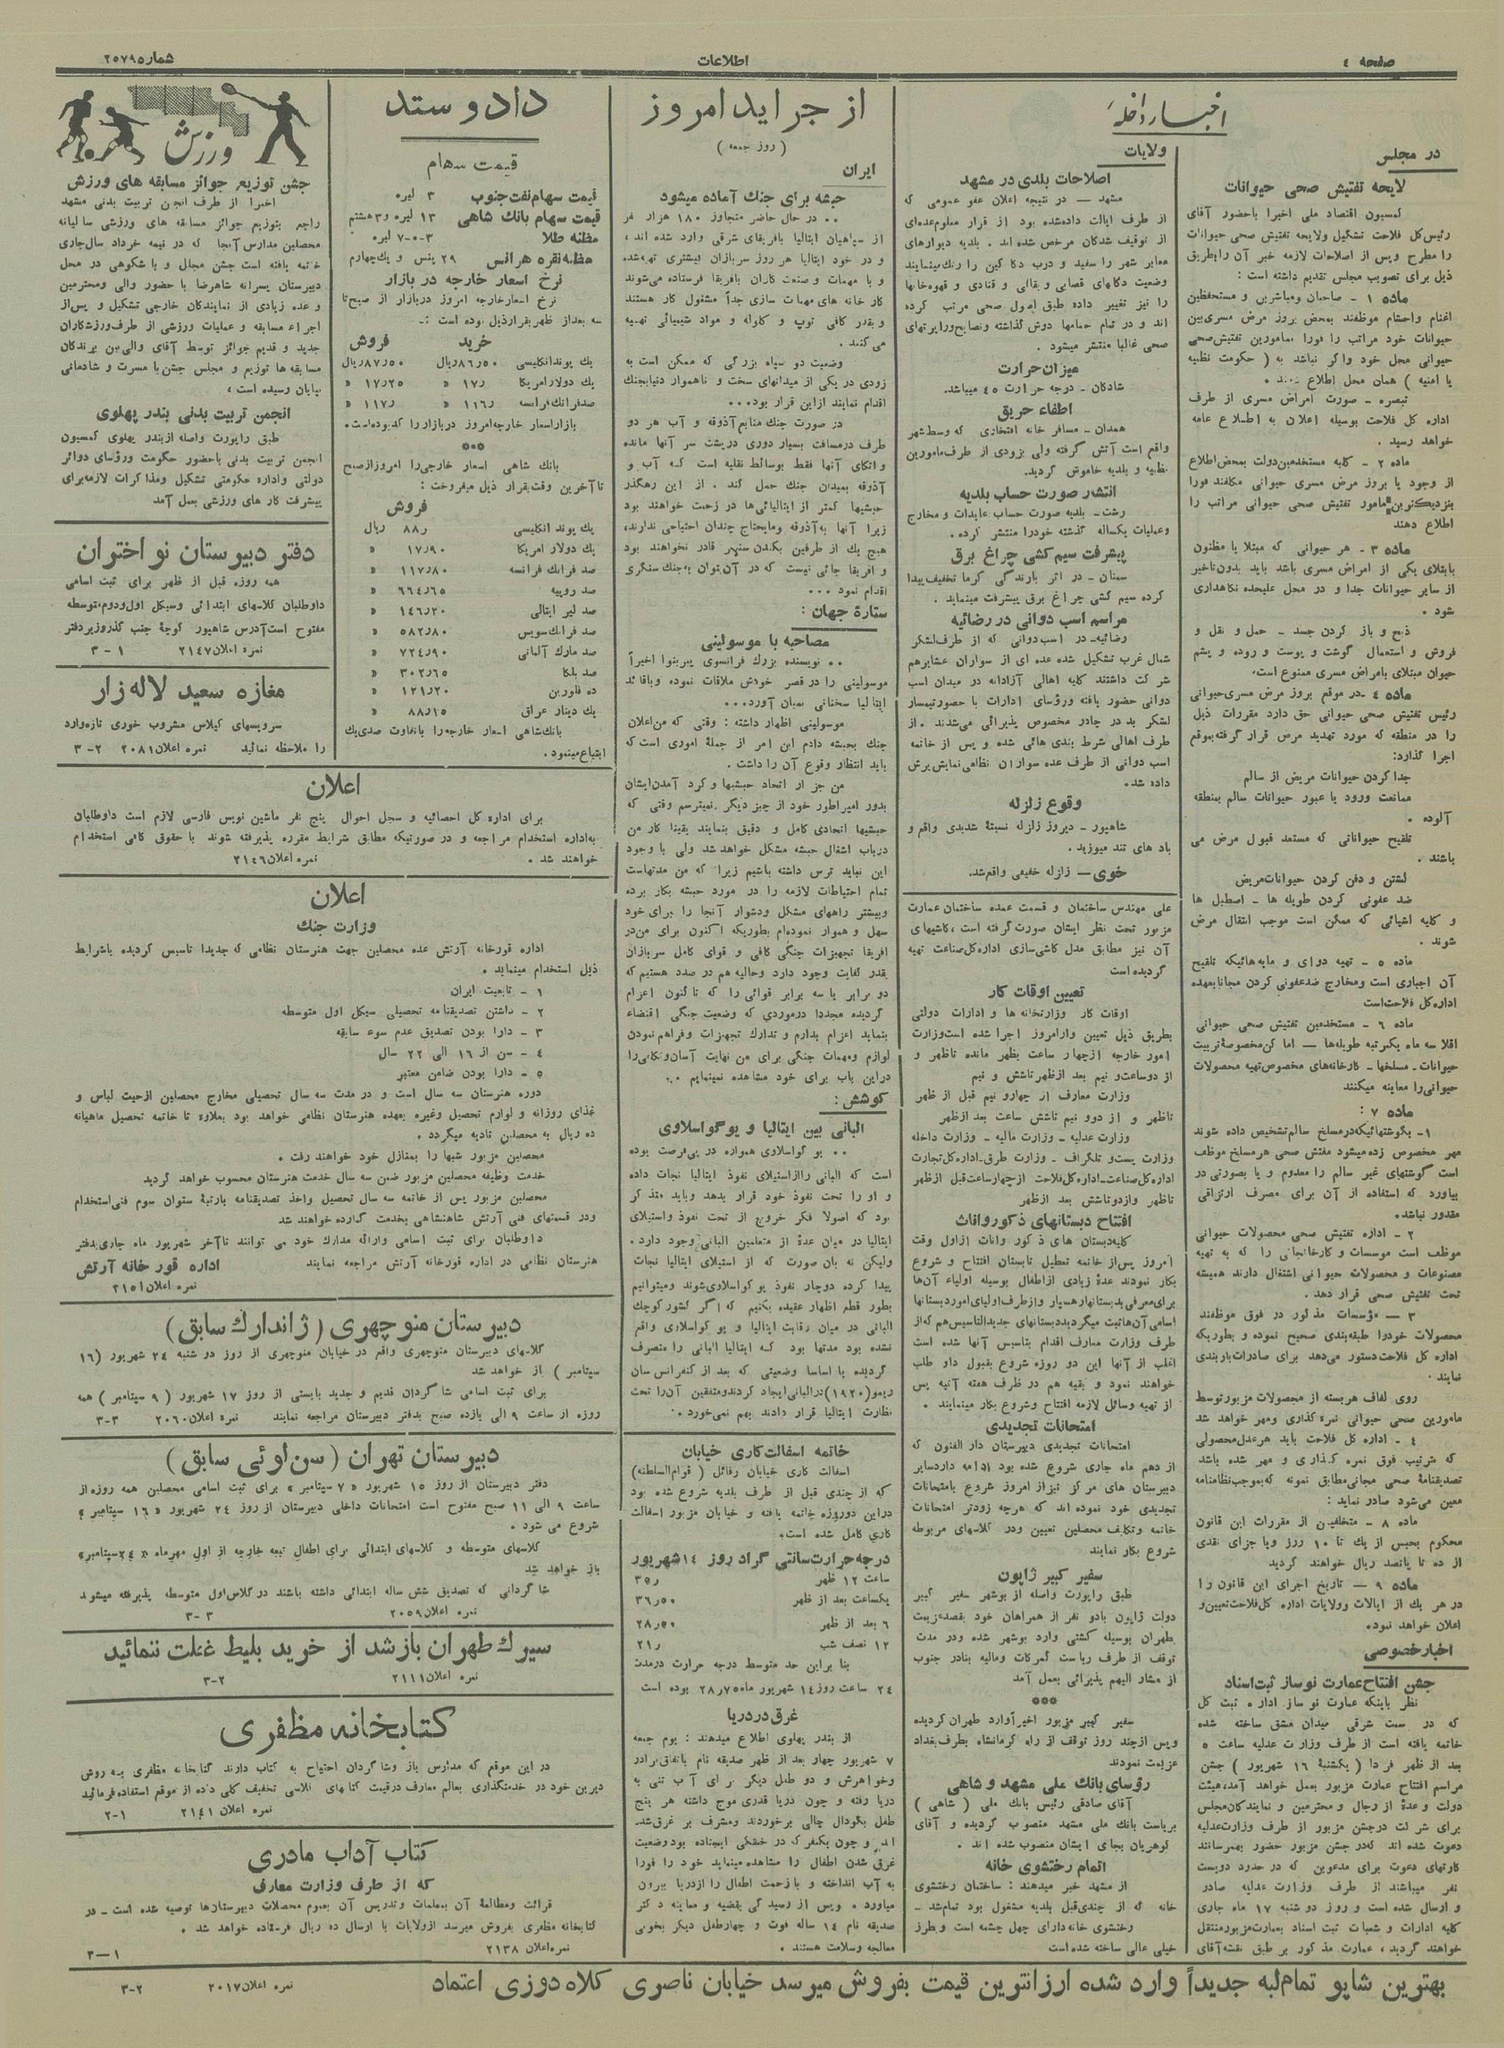 صفحه ٤
اطلاعات
شماره ٢٥٧٩
اخبار داخله
در مجلس
لایحه تفتیش صحی حیوانات
کمسیون اقتصاد ملی اخیرا باحضور آقای
رئیس کل فلاحت تشکیل ولایحه تفتیش صحی حیوانات
را مطرح وپس از اصلاحات لازمه خبر آن را بطریق
ذیل برای تصویب مجلس تقدیم داشته است :
ماده ١ - صاحبان ومباشرین و مستحفظین
اغنام واحشام موظفند بمحض بروز مرض مسری بین
حیوانات خود مراتب را فورا بمامورین تفتیش صحی
حیوانی محل خود واگر نباشد به ( حکومت نظمیه
یا امنیه ) همان محل اطلاع دهند .
تبصره - صورت امراض مسری از طرف
اداره کل فلاحت بوسیله اعلان به اطلاع عامه
خواهد رسید .
ماده ٢ - کلیه مستخدمین دولت بمحض اطلاع
از وجود یا بروز مرض مسری حیوانی مکلفند فورا
بنزدیکترین مامور تفتیش صحی حیوانی مراتب را
اطلاع دهند
ماده ٣ - هر حیوانی که مبتلا یا مظنون
بابتلای یکی از امراض مسری باشد باید بدون تاخیر
از سایر حیوانات جدا و در محل علیحده نگاهداری
شود .
ذبح و باز کردن جسد - حمل و نقل و
فروش و استعمال گوشت و پوست و روده و پشم
حیوان مبتلای بامراض مسری ممنوع است .
ماده ٤ - در موقع بروز مرض مسری حیوانی
رئیس تفتیش صحی حیوانی حق دارد مقررات ذیل
را در منطقه که مورد تهدید مرض قرار گرفته بموقع
اجرا گذارد:
جدا کردن حیوانات مریض از سالم
ممانعت ورود یا عبور حیوانات سالم بمنطقه
آلوده .
تلقیح حیواناتی که مستعد قبول مرض می
باشند .
کشتن و دفن کردن حیوانات مریض
ضد عفونی کردن طویله ها - اصطبل ها
و کلیه اشیائی که ممکن است موجب انتقال مرض
شوند .
ماده ٥ - تهیه دوای و مایه هائیکه تلقیح
آن اجباری است ومخارج ضدعفونی کردن مجانا بعهده
اداره کل فلاحت است
ماده ٦ - مستخدمین تفتیش صحی حیوانی
اقلا سه ماه یکمرتبه طویله ها - اماکن مخصوصه تربیت
حیوانات - مسلخها - کارخانه های مخصوص تهیه محصولات
حیوانی را معاینه میکنند
ماده ٧ :
١- بگوشتهائیکه در مسلخ سالم تشخیص داده شوند
مهر مخصوص زده میشود مفتش صحی هر مسلخ موظف
است گوشتهای غیر سالم را معدوم و یا بصورتی در
بیاورد که استفاده از آن برای مصرف ارتزاقی
مقدور نباشد .
٢ - اداره تفتیش صحی محصولات حیوانی
موظف است موسسات و کارخانجاتی را که به تهیه
مصنوعات و محصولات حیوانی اشتغال دارند همیشه
تحت تفتیش صحی قرار دهد .
٣ - مؤسسات مذکور در فوق موظفند
محصولات خودرا طبقه بندی صحیح نموده و بطوریکه
اداره کل فلاحت دستور می‌دهد برای صادرات باربندی
نمایند .
روی لفاف هر بسته از محصولات مزبور توسط
مامورین صحی حیوانی نمره گذاری ومهر خواهد شد
٤ - اداره کل فلاحت باید هر عدل محصولی
که بترتیب فوق نمره گذاری و مهر شده باشد
تصدیقنامهٔ صحی مجانی مطابق نمونه که بموجب نظامنامه
معین می‌شود صادر نماید :
ماده ٨ - متخلفین از مقررات این قانون
محکوم بحبس از یک تا ١٠ روز ویا جزای نقدی
از ده تا پانصد ریال خواهند گردید
ماده ٩ - تاریخ اجرای این قانون را
در هر یک از ایالات وولایات اداره کل فلاحت تعیین و
اعلان خواهد نمود .
اخبار خصوصی
جشن افتتاح عمارت نوساز ثبت اسناد
نظر باینکه عمارت نو ساز اداره ثبت کل
که در سمت شرقی میدان مشق ساخته شده
خاتمه یافته است از طرف وزارت عدلیه ساعت ٥
بعد از ظهر فردا ( یکشنبه ١٦ شهریور ) جشن
مراسم افتتاح عمارت مزبور بعمل خواهد آمد، هیئت
دولت و عدهٔ از رجال و محترمین و نمایندگان مجلس
برای شرکت درجشن مزبور از طرف وزارت عدلیه
دعوت شده اند که در جشن مزبور حضور بهمرسانند
کارتهای دعوت برای مدعوین که در حدود دویست
نفر میباشند از طرف وزارت عدلیه صادر
و ارسال شده است و روز دو شنبه ١٧ ماه جاری
کلیه ادارات و شعبات ثبت اسناد بعمارت مزبور منتقل
خواهند گردید ، عمارت مذکور بر طبق نقشه آقای
ولایات
اصلاحات بلدی در مشهد
مشهد - در نتیجه اعلان عفو عمومی که
از طرف ایالت داده شده بود از قرار معلوم عده‌ای
از توقیف شدگان مرخص شده اند . بلدیه دیوارهای
معابر شهر را سفید و درب دکا کین را رنگ مینمایند
وضعیت دکانهای قصابی و بقالی و قنادی و قهوه خانها
را نیز تغییر داده طبق اصول صحی مرتب کرده
اند و در تمام حمامها دوش گذاشته ونصایح ورایرتهای
صحی غالبا منتشر میشود .
میزان حرارت
شادکان - درجه حرارت ٤٥ میباشد .
اطفاء حریق
همدان - مسافر خانه افتخاری که وسط شهر
واقع است آتش گرفته ولی بزودی از طرف مامورین
نظمیه و بلدیه خاموش گردید .
انتشار صورت حساب بلدیه
رشت - بلدیه صورت حساب عایدات و مخارج
وعملیات یکساله گذشته خودرا منتشر کرده .
پیشرفت سیم کشی چراغ برق
سمنان - در اثر بارندگی گرما تخفیف پیدا
کرده سیم کشی چراغ برق پیشرفت مینماید .
مراسم اسب دوانی در رضائیه
رضائیه - در اسب دوانی که از طرف لشگر
شمال غرب تشکیل شده عده ای از سواران عشایر هم
شرکت داشتند کلیه اهالی آزادانه در میدان اسب
دوانی حضور یافته ورؤسای ادارات با حضور تیمسار
لشگر بد در چادر مخصوص پذیرائی می‌شدند . از
طرف اهالی شرط بندی هائی شده و پس از خاتمه
اسب دوانی از طرف عده سواران نظامی نمایش پرش
داده شد .
وقوع زلزله
شاهپور - دیروز زلزله نسبتهٔ شدیدی واقع و
باد های تند میوزید .
خوی - زلزله خفیفی واقع شد .
علی مهندس ساختمان و قسمت عمده ساختمان عمارت
مزبور تحت نظر ایشان صورت گرفته است ، کاشیهای
آن نیز مطابق مدل کاشی سازی اداره کل صناعت تهیه
گردیده است
تعیین اوقات کار
اوقات کار وزارتخانه ها و ادارات دولتی
بطریق ذیل تعیین وازامروز اجرا شده است وزارت
امور خارجه از چهار ساعت بظهر مانده تا ظهر و
از دوساعت و نیم بعد از ظهر تا شش و نیم
وزارت معارف از چهار و نیم قبل از ظهر
تا ظهر و از دو و نیم تا شش ساعت بعد از ظهر
وزارت عدلیه - وزارت مالیه - وزارت داخله
وزارت پست و تلگراف - وزارت طرق - اداره کل تجارت
اداره کل صناعت - اداره کل فلاحت از چهار ساعت قبل از ظهر
تا ظهر واز دو تا شش بعد از ظهر
افتتاح دبستانهای ذکور واناث
کلیه دبستان های ذکور واناث از اول وقت
امروز پس از خاتمه تعطیل تابستان افتتاح و شروع
بکار نمودند عدهٔ زیادی از اطفال بوسیله اولیاء آن‌ها
برای معرفی بدبستانها رهسپار وازطرف اولیای امور دبستانها
اسامی آن‌ها ثبت میگردید دبستانهای جدید التاسیس هم که از
طرف وزارت معارف اقدام بتاسیس آنها شده است
اغلب از آنها این دو روزه شروع بقبول داو طلب
خواهند نمود و بقیه هم در ظرف هفته آتیه پس
از تهیه وسائل لازمه افتتاح وشروع بکار مینمایند .
امتحانات تجدیدی
امتحانات تجدیدی دبیرستان دار الفنون که
از دهم ماه جاری شروع شده بود ادامه دارد سایر
دبیرستان های مرکز نیز از امروز شروع بامتحانات
تجدیدی خود نموده اند که هرچه زودتر امتحانات
خاتمه وتکلیف محصلین تعیین ودر کلاسهای مربوطه
شروع بکار نمایند
سفیر کبیر ژاپون
طبق راپورت واصله از بوشهر سفیر کبیر
دولت ژاپون بادو نفر از همراهان خود بقصد عزیمت
بطهران بوسیله کشتی وارد بوشهر شده ودر مدت
توقف از طرف ریاست گمرکات ومالیه بنادر جنوب
از مشار الیهم پذیرائی بعمل آمد
***
سفیر کبیر مزبور اخیرا وارد طهران گردیده
وپس از چند روز توقف از راه کرمانشاه بطرف بغداد
عزیمت نمودند
رؤسای بانک ملی مشهد و شاهی
آقای صادقی رئیس بانک ملی ( شاهی )
بریاست بانک ملی مشهد منصوب گردیده و آقای
گوهریان بجای ایشان منصوب شده اند .
اتمام رختشوی خانه
از مشهد خبر میدهند : ساختمان رختشوی
خانه که از چندی قبل بلدیه مشغول بود تمام شد -
رختشوی خانه دارای چهل چشمه است و بطرز
خیلی عالی ساخته شده است
از جراید امروز
( روز جمعه )
ایران
حبشه برای جنگ آماده میشود
.. در حال حاضر متجاوز ١٨٠ هزار نفر
از سپاهیان ایتالیا بافریقای شرقی وارد شده اند ،
و در خود ایتالیا هر روز سربازان بیشتری تهیه شده
و با مهمات و صنعت کاران بافریقا فرستاده می‌شوند
کار خانه های مهمات سازی جداً مشغول کار هستند
و بقدر کافی توپ و گلوله و مواد شیمیائی تهیه
می کنند .
وضعیت دو سپاه بزرگی که ممکن است به
زودی در یکی از میدانهای سخت و ناهموار دنیا بجنگ
اقدام نمایند از این قرار بود...
در صورت جنگ منابع آذوقه و آب هر دو
طرف در مسافت بسیار دوری در پشت سر آنها مانده
و اتکای آنها فقط بوسائط نقلیه است که آب و
آذوقه بمیدان جنگ حمل کند . از این رهگذر
حبشیها کمتر از ایتالیائی ها در زحمت خواهند بود
زیرا آنها به آذوقه ومایحتاج چندان احتیاجی ندارند،
هیچ یک از طرفین بکندن سنگر قادر نخواهند بود
و افریقا جائی نیست که در آن بتوان به جنگ سنگری
اقدام نمود ...
ستارهٔ جهان :
مصاحبه با موسولینی
.. نویسنده بزرگ فرانسوی پیر بنوا اخیراً
موسولینی را در قصر خودش ملاقات نموده وباقائد
ایتالیا سخنانی بمیان آورد...
موسولینی اظهار داشته : وقتی که من اعلان
جنگ بحبشه دادم این امر از جملهٔ اموری است که
باید انتظار وقوع آن را داشت .
من جز از اتحاد حبشیها و گرد آمدن ایشان
بدور امپراطور خود از چیز دیگر نمیترسم وقتی که
حبشیها اتحادی کامل و دقیق بنمایند یقینا کار من
درباب اشغال حبشه مشکل خواهد شد ولی با وجود
این نباید ترس داشته باشیم زیرا که من مدتهاست
تمام احتیاطات لازمه را در مورد حبشه بکار برده
وبیشتر راههای مشکل ودشوار آنجا را برای خود
سهل و هموار نموده‌ام بطوریکه اکنون برای من در
افریقا تجهیزات جنگی کافی و قوای کامل سربازان
بقدر کفایت وجود دارد وحالیه هم در صدد هستیم که
دو برابر یا سه برابر قوائی را که تا کنون اعزام
گردیده مجددا در موردی که وضعیت جنگی اقتضاء
بنماید اعزام بدارم و تدارک تجهیزات و فراهم نمودن
لوازم ومهمات جنگی برای من نهایت آسان و کافی را
در این باب برای خود مشاهده نمینمایم ..
کوشش :
البانی بین ایتالیا و یوگواسلاوی
.. یو گواسلاوی همواره در پی فرصت بوده
است که البانی را از استیلای نفوذ ایتالیا نجات داده
و او را تحت نفوذ خود قرار بدهد وباید متذکر
بود که اصولا فکر خروج از تحت نفوذ واستیلای
ایتالیا در میان عدهٔ از متعلمین البانی وجود دارد .
ولیکن نه بان صورت که از استیلای ایتالیا نجات
پیدا کرده دوچار نفوذ یوگواسلاوی شوند ومیتوانیم
بطور قطع اظهار عقیده بکنیم که اگر کشور کوچک
البانی در میان رقابت ایتالیا و یو گواسلاوی واقع
نشده بود مدتها بود که ایتالیا البانی را متصرف
گردیده یا اساسا وضعیتی که بعد از کنفرانس سان
ریمو (١٩٢٠) در البانی ایجاد کردند ومتفقین آن را تحت
نظارت ایتالیا قرار دادند بهم نمی‌خورد .
خاتمه اسفالت کاری خیابان
اسفالت کاری خیابان رفائل ( قوام السلطنه )
که از چندی قبل از طرف بلدیه شروع شده بود
دراین دوروزه خاتمه یافته و خیابان مزبور اسفالت
کاری کامل شده است .
درجه حرارت سانتی گراد روز ١٤ شهریور
ساعت ١٢ ظهر ٣٥ر
یکساعت بعد از ظهر ٣٦ر٥٠
٦ بعد از ظهر ٢٨ر٥٠
١٢ نصف شب ٢١ر
بنا براین حد متوسط درجه حرارت درمدت
٢٤ ساعت روز ١٤ شهریور ماه ٢٨ر٧٥ بوده است
غرق در دریا
از بندر پهلوی اطلاع میدهند : یوم جمعه
٧ شهریور چهار بعد از ظهر صدیقه نام باتفاق برادر
وخواهرش و دو طفل دیگر برای آب تنی به
دریا رفته و چون دریا قدری موج داشته هر پنج
طفل بگودال چالی برخوردند ومشرف بر غرق شده
اند و چون یکنفر که در خشکی ایستاده بود وضعیت
غرق شدن اطفال را مشاهده مینماید خود را فورا
به آب انداخته و بازحمت اطفال را ازدریا بیرون
میاورد . وپس از رسیدگی بقضیه و معاینه دکتر
صدیقه نام ١٤ ساله فوت و چهار طفل دیگر بخوبی
معالجه وسلامت هستند .
داد و ستد
قیمت سهام
قیمت سهام نفت جنوب ٣ لیره
قیمت سهام بانک شاهی ١٣ لیره و ٣ هشتم
مظنه طلا ٣-٠-٧ لیره
مظنه نقره هر انس ٢٩ پنس و یک چهارم
نرخ اسعار خارجه در بازار
نرخ اسعار خارجه امروز دربازار از صبح تا
سه بعد از ظهر بقرار ذیل بوده است :-
خرید فروش
یک پوند انگلیسی ٨٦ر٥٠ ریال ٨٧ر٥٠ ریال
یک دولار امریکا ١٧ر « ١٧ر٢٥ «
صد فرانک فرانسه ١١٦ر « ١١٧ر «
بازار اسعار خارجه امروز دربازار را کد بوده است .
***
بانک شاهی اسعار خارجی را امروز از صبح
تا آخرین وقت بقرار ذیل میفروخت :
فروش
یک پوند انگلیسی ٨٨ر ریال
یک دولار امریکا ١٧ر٩٠ «
صد فرانک فرانسه ١١٧ر٨٠ «
صد روپیه ٦٦٤ر٦٥ «
صد لیر ایتالی ١٤٦ر٢٠ «
صد فرانک سویس ٥٨٢ر٨٠ «
صد مارک آلمانی ٧٢٤ر٩٠ «
صد بلگا ٣٠٢ر٦٥ «
ده فلورین ١٢١ر٢٠ «
یک دینار عراق ٨٨ر١٥ «
بانک شاهی اسعار خارجه را با تفاوت صدی یک
ابتیاع مینمود .
ورزش
جشن توزیع جوائز مسابقه های ورزش
اخیرا از طرف انجمن تربیت بدنی مشهد
راجع بتوزیع جوائز مسابقه های ورزشی سالیانه
محصلین مدارس آنجا که در نیمه خرداد سال جاری
خاتمه یافته است جشن مجلل و با شکوهی در محل
دبیرستان پسرانه شاهرضا با حضور والی ومحترمین
و عده زیادی از نمایندگان خارجی تشکیل و پس از
اجراء مسابقه و عملیات ورزشی از طرف ورزشکاران
جدید و قدیم جوائز توسط آقای والی بین برندگان
مسابقه ها توزیع و مجلس جشن با مسرت و شادمانی
بپایان رسیده است ،
انجمن تربیت بدنی بندر پهلوی
طبق راپورت واصله ازبندر پهلوی کمسیون
انجمن تربیت بدنی باحضور حکومت ورؤسای دوائر
دولتی واداره حکومتی تشکیل ومذاکرات لازمه برای
پیشرفت کار های ورزشی بعمل آمد
دفتر دبیرستان نو اختران
همه روزه قبل از ظهر برای ثبت اسامی
داوطلبان کلاسهای ابتدائی وسیکل اول ودوم متوسطه
مفتوح است آدرس شاهپور کوچهٔ جنب گذر وزیر دفتر
نمره اعلان ٢١٤٧ ١ - ٣
مغازه سعید لاله زار
سرویسهای گیلاس مشروب خوری تازه وارد
را ملاحظه نمائید نمره اعلان ٢٠٨١ ٢-٣
اعلان
برای اداره کل احصائیه و سجل احوال پنج نفر ماشین نویس فارسی لازم است داوطلبان
به اداره استخدام مراجعه و در صورتیکه مطابق شرایط مقرره پذیرفته شوند با حقوق کافی استخدام
خواهند شد . نمره اعلان ٢١٤٦
اعلان
وزارت جنگ
اداره قورخانه آرتش عده محصلین جهت هنرستان نظامی که جدیدا تاسیس گردیده باشرایط
ذیل استخدام مینماید .
١ - تابعیت ایران
٢ - داشتن تصدیقنامه تحصیلی سیکل اول متوسطه
٣ - دارا بودن تصدیق عدم سوء سابقه
٤ - سن از ١٦ الی ٢٢ سال
٥ - دارا بودن ضامن معتبر
دوره هنرستان سه سال است و در مدت سه سال تحصیلی مخارج محصلین از حیث لباس و
غذای روزانه و لوازم تحصیل وغیره بعهده هنرستان نظامی خواهد بود بعلاوه تا خاتمه تحصیل ماهیانه
ده ریال به محصلین تادیه میگردد .
محصلین مزبور شبها را بمنازل خود خواهند رفت .
خدمت وظیفه محصلین مزبور ضمن سه سال خدمت هنرستان محسوب خواهد گردید
محصلین مزبور پس از خاتمه سه سال تحصیل واخذ تصدیقنامه بارتبهٔ ستوان سوم فنی استخدام
ودر قسمتهای فنی آرتش شاهنشاهی بخدمت گمارده خواهند شد
داوطلبان برای ثبت اسامی وارائه مدارک خود می توانند تا آخر شهریور ماه جاری بدفتر
هنرستان نظامی در اداره قورخانه آرتش مراجعه نمایند اداره قور خانه آرتش
نمره اعلان ٢١٥١
دبیرستان منوچهری (ژاندارک سابق)
کلاسهای دبیرستان منوچهری واقع در خیابان منوچهری از روز دو شنبه ٢٤ شهریور (١٦
سپتامبر ) باز خواهد شد
برای ثبت اسامی شاگردان قدیم و جدید بایستی از روز ١٧ شهریور ( ٩ سپتامبر ) همه
روزه از ساعت ٩ الی یازده صبح بدفتر دبیرستان مراجعه نمایند نمره اعلان ٢٠٦٠ ٣-٣
دبیرستان تهران (سن لوئی سابق)
دفتر دبیرستان از روز ١٥ شهریور « ٧ سپتامبر » برای ثبت اسامی محصلین همه روزه از
ساعت ٩ الی ١١ صبح مفتوح است امتحانات داخلی دبیرستان از روز ٢٤ شهریور « ١٦ سپتامبر »
شروع می شود .
کلاسهای متوسطه و کلاسهای ابتدائی برای اطفال تبعه خارجه از اول مهرماه « ٢٤ سپتامبر»
باز خواهد شد
شاگردانی که تصدیق شش ساله ابتدائی داشته باشند در کلاس اول متوسطه پذیرفته میشود
نمره اعلان ٢٠٥٩ ٣-٣
سیرک طهران باز شد از خرید بلیط غفلت ننمائید
نمره اعلان ٢١١١ ٢-٣
کتابخانه مظفری
در این موقع که مدارس باز وشاگردان احتیاج به کتاب دارند کتابخانه مظفری به روش
دیرین خود در خدمتگذاری بعالم معارف درقیمت کتابهای کلاسی تخفیف کلی داده از موقع استفاده فرمائید
نمره اعلان ٢١٤١ ١-٢
کتاب آداب مادری
که از طرف وزارت معارف
قرائت ومطالعهٔ آن بمعلمات وتدریس آن بعموم محصلات دبیرستان‌ها توصیه شده است - در
کتابخانه مظفری بفروش میرسد ازولایات با ارسال ده ریال فرستاده خواهد شد .
نمره اعلان ٢١٣٨ ١-٣
بهترین شاپو تمام لبه جدیداً وارد شده ارزانترین قیمت بفروش میرسد خیابان ناصری کلاه دوزی اعتماد
نمره اعلان ٢٠١٧ ٢-٣